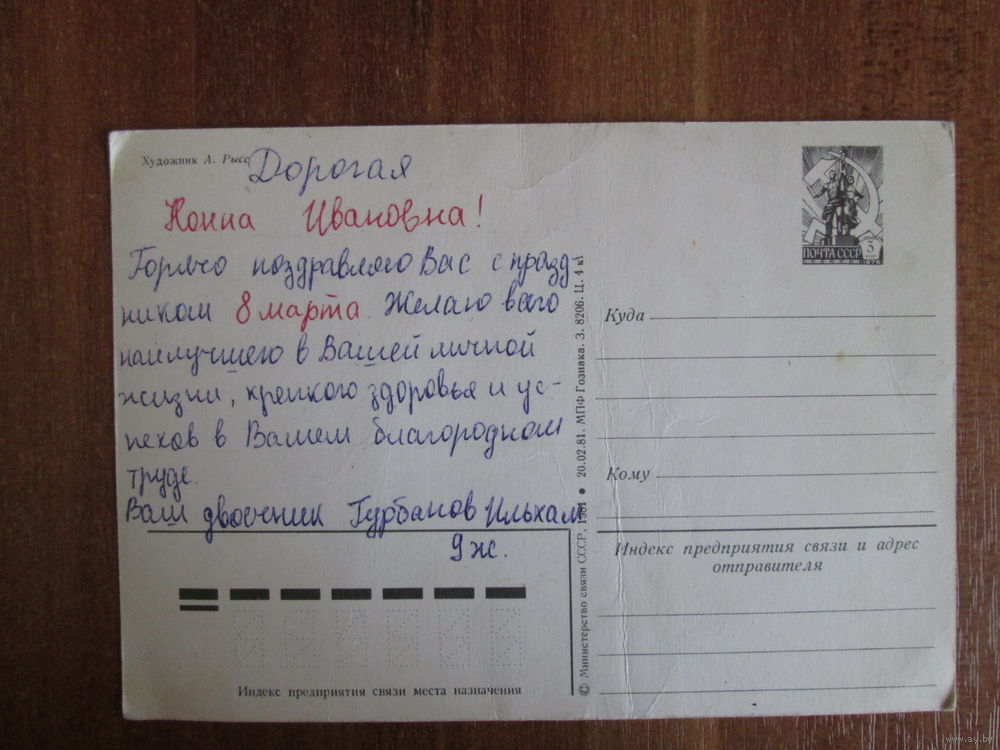 Художник А. Рысс
Дорогая
Нонна Ивановна!
Горячо поздравляю Вас с празд-
ником 8 марта. Желаю всего
наилучшего в Вашей личной
жизни, крепкого здоровья и ус-
пехов в Вашем благородном
труде.
Ваш двоечник Гурбанов Ильхам
9 ж.
Индекс предприятия связи места назначения
© Министерство связи СССР, 1981 • 20.02.81. МПФ Гознака. З. 8206. Ц. 4 к.
ПОЧТА СССР 3
1976
Куда
Кому
Индекс предприятия связи и адрес
отправителя
www.ay.by